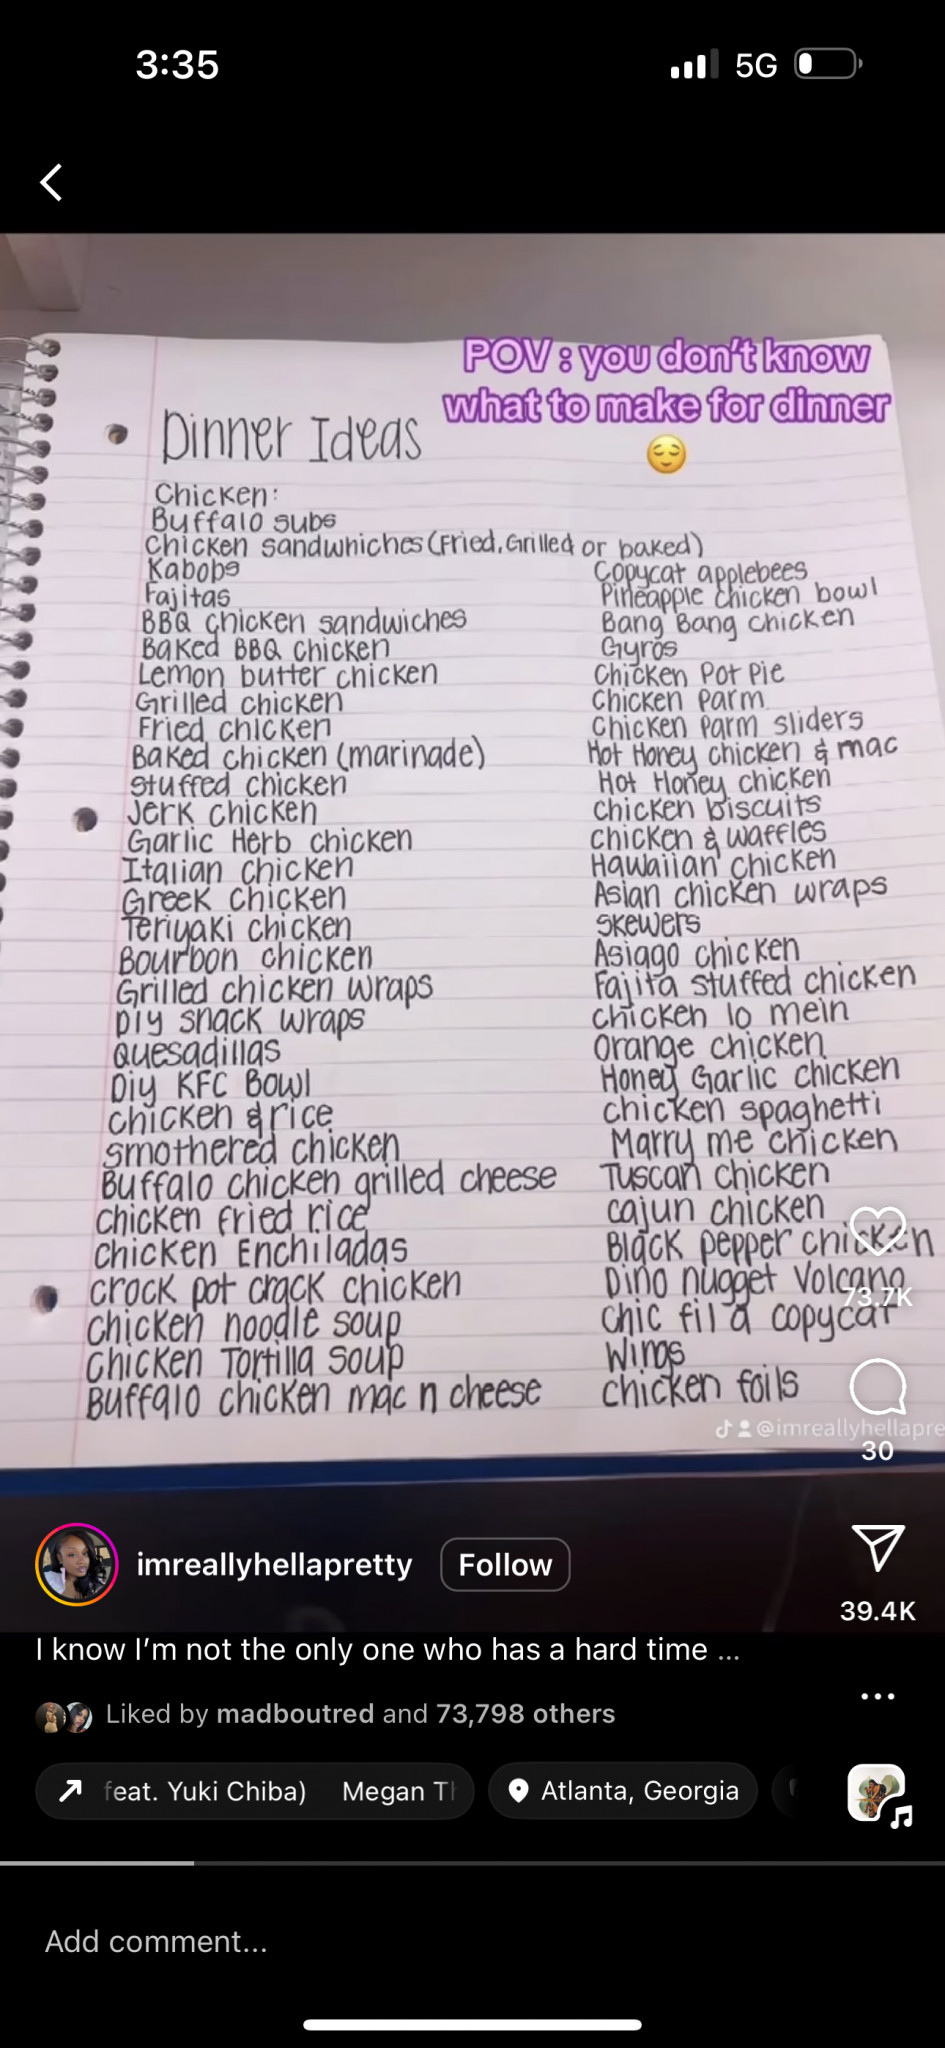 3:35
5G
POV : you don't know
what to make for dinner
Dinner Ideas
Chicken:
Buffalo subs
Chicken sandwhiches (Fried, Grilled or baked)
Kabobs
Fajitas
BBQ chicken sandwiches
Baked BBQ chicken
Lemon butter chicken
Grilled chicken
Fried chicken
Baked chicken (marinade)
stuffed chicken
Jerk chicken
Garlic Herb chicken
Italian chicken
Greek chicken
Teriyaki chicken
Bourbon chicken
Grilled chicken wraps
DIY snack wraps
Quesadillas
Diy KFC Bowl
chicken & rice
smothered chicken
Buffalo chicken grilled cheese
chicken fried rice
chicken Enchiladas
crock pot crack chicken
chicken noodle soup
Chicken Tortilla soup
Buffalo chicken mac n cheese
Copycat applebees
Pineapple chicken bowl
Bang Bang chicken
Gyros
Chicken Pot Pie
Chicken Parm
Chicken Parm sliders
Hot Honey chicken & mac
Hot Honey chicken
chicken biscuits
chicken & waffles
Hawaiian chicken
Asian chicken wraps
skewers
Asiago chicken
Fajita stuffed chicken
chicken lo mein
Orange chicken
Honey Garlic chicken
chicken spaghetti
Marry me chicken
Tuscan chicken
cajun chicken
Black pepper chicken
Dino nugget Volcano
chic fil a copycat
Wings
chicken foils
73.7K
@imreallyhellapre
30
imreallyhellapretty
Follow
39.4K
I know I'm not the only one who has a hard time ...
Liked by madboutred and 73,798 others
feat. Yuki Chiba) Megan Th
Atlanta, Georgia
Add comment...